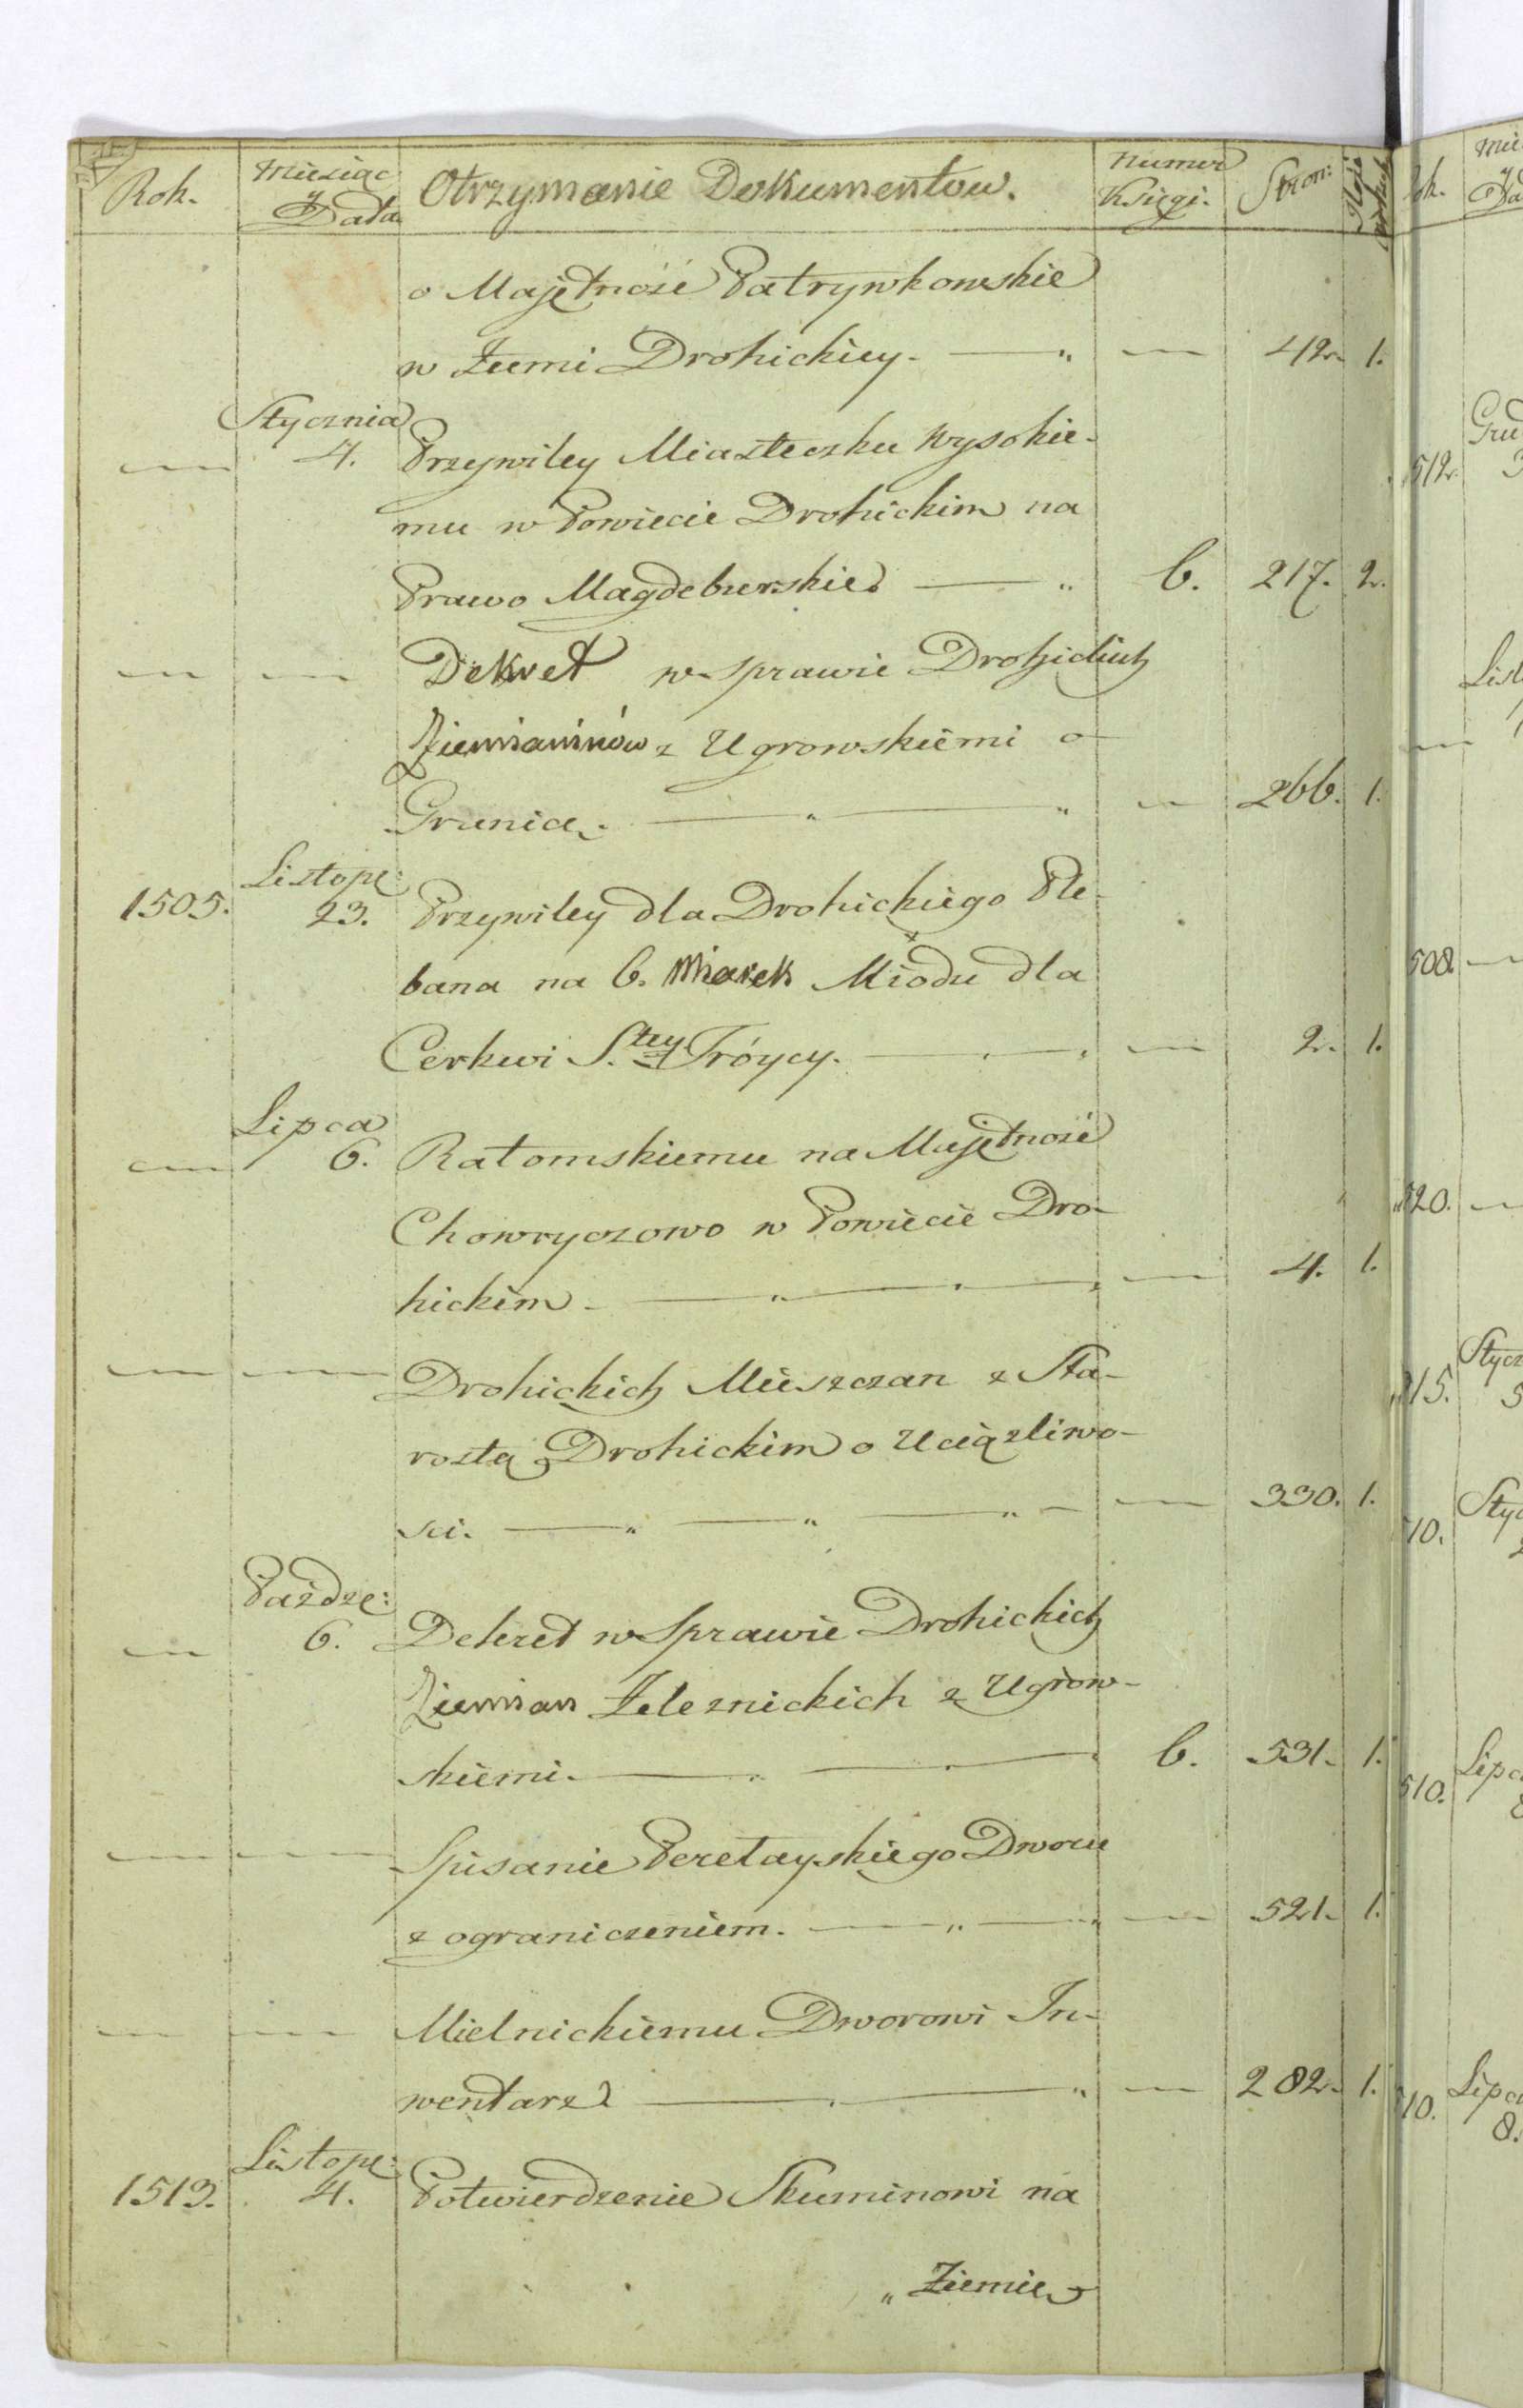 Rok. Miesiąc y Data Otrzymanie Dokumentow. Numer Księgi. Stron:
o Majętność Patrywkowskie
w Ziemi Drohickiey. — „ — 412. 1.
Stycznia
— 4. Przywiley Miasteczku Wysokie-
mu w Powiecie Drohickim na
Prawo Magdeburskie — „ 6. 217. 2.
— — Dekret w sprawie Drohickich
Ziemianinów z Ugrowskiemi o
Grunia. — „ — „ — 266. 1.
Listopa:
1505. 23. Przywiley dla Drohickiego Ple-
bana na 6. Miarek Miodu dla
Cerkwi S.tey Tróycy. — — 2. 1.
Lipca
— 6. Ratomskiemu na Majętność
Chowryczowo w Powiecie Dro-
hickim. — „ — 4. 1.
— — Drohickich Mieszczan z Sta-
rostą Drohickim o Uciążliwo-
sci. — „ — „ — „ — — 330. 1.
Paźdze:
— 6. Dekret w Sprawie Drohickich
Ziemian Zeleznickich z Ugrow-
skiemi. — „ — 6. 531. 1.
— — Spisanie Peretayskiego Dworu
z ograniczeniem. — „ — „ — 521. 1.
— — Mielnickiemu Dworowi In-
wentarz — — „ — 282. 1.
Listopa:
1513. 4. Potwierdzenie Skuminowi na
„ Ziemie